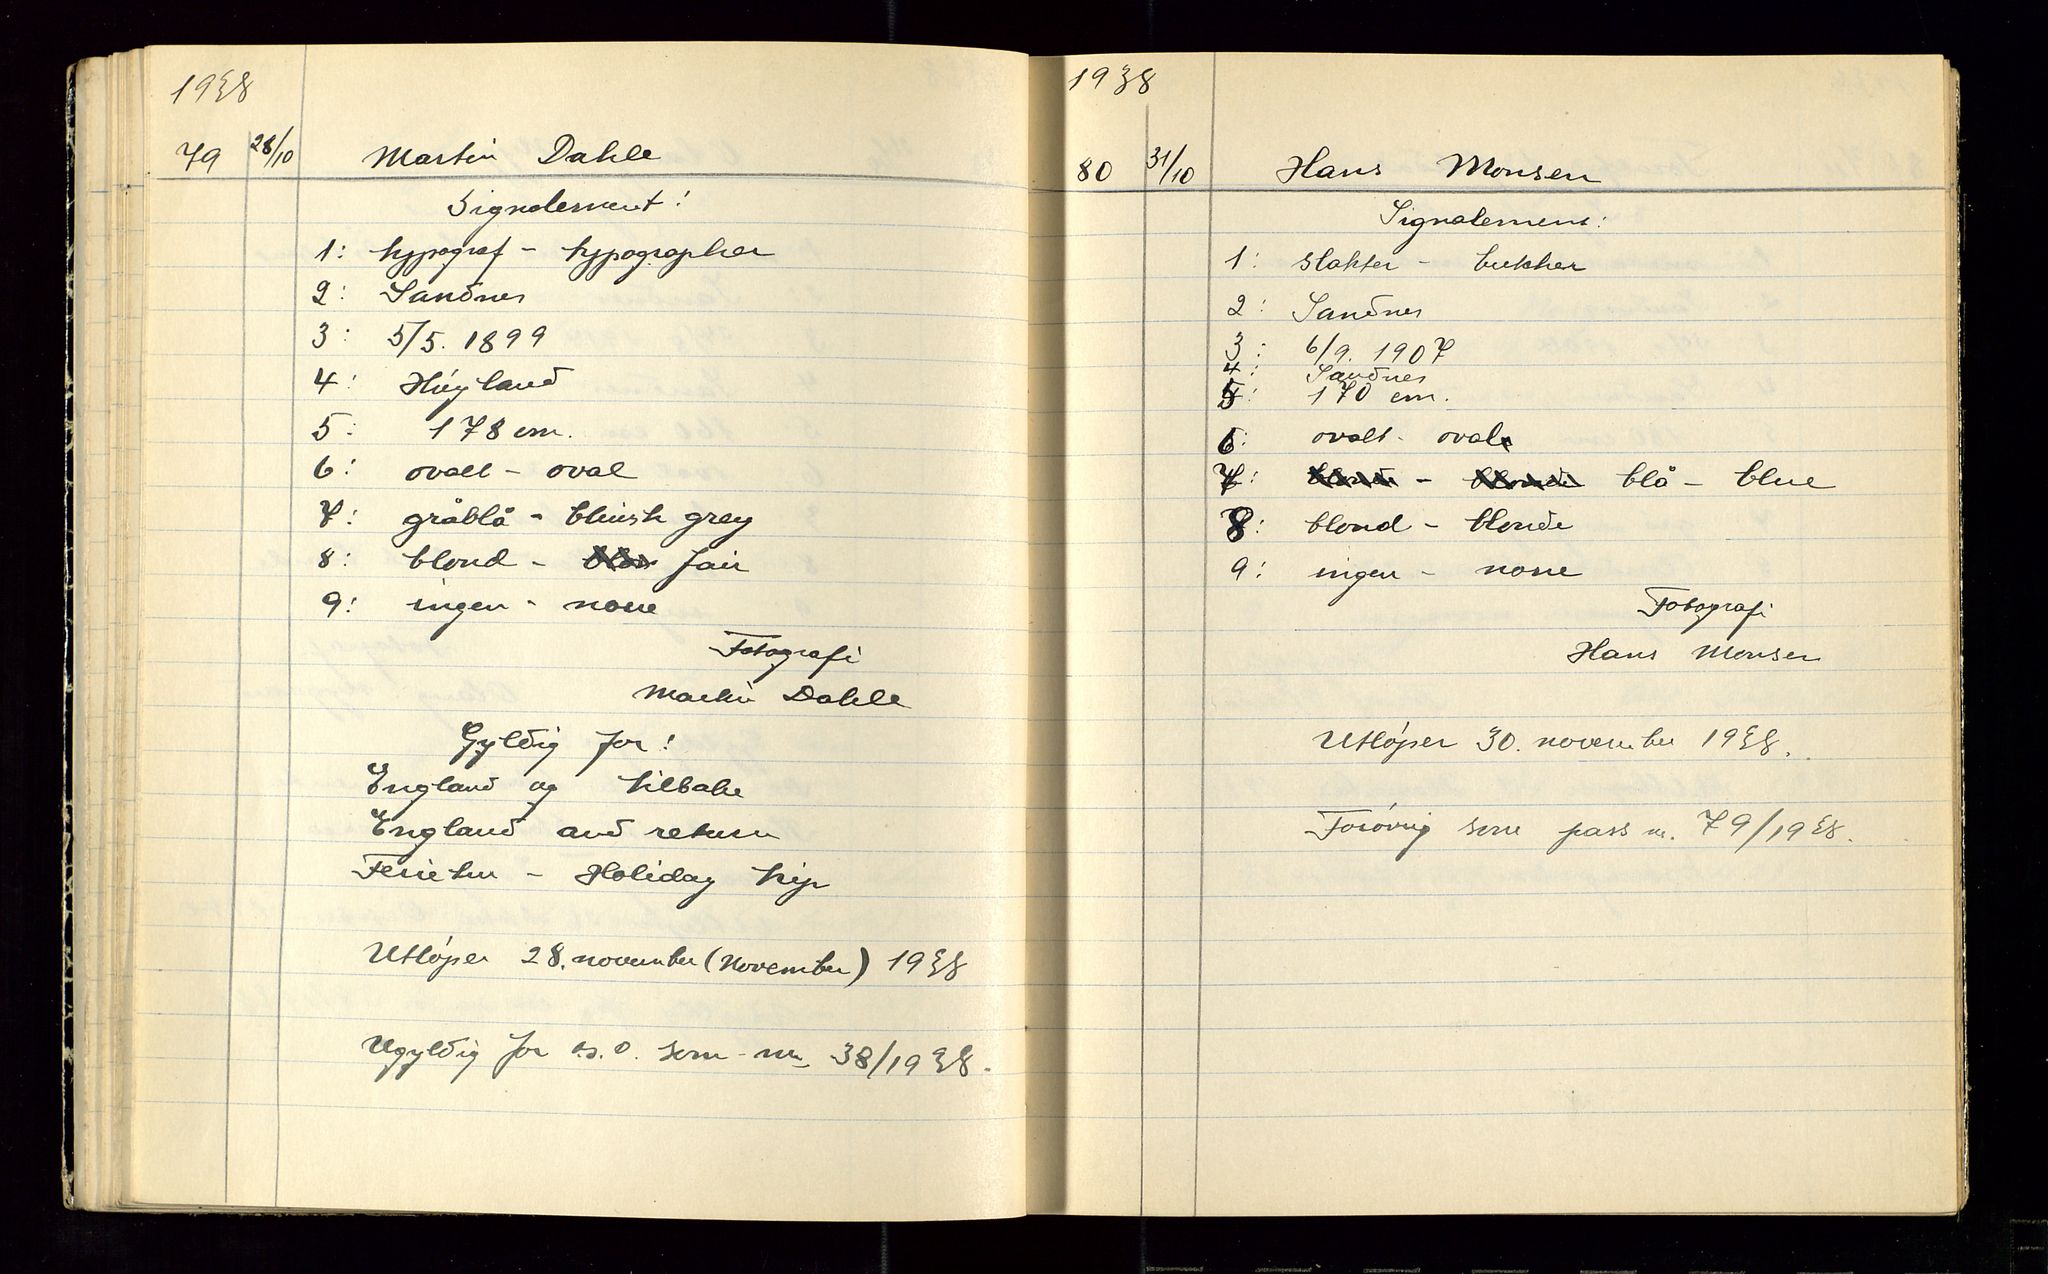 1938
79 28/10 Martin Dahle
Signalement:
1: typograf - typographer
2: Sandnes
3: 5/5. 1899
4: Høyland
5: 178 cm.
6: ovalt - oval
7: gråblå - bluish grey
8: blond - fair
9: ingen - none
Fotografi
Martin Dahle
Gyldig for:
England og tilbake
England and return
Ferietur - Holiday trip
Utløper 28. november (November) 1938
Ugyldig for o.s.v. som nr. 38/1938.
1938
80 31/10 Hans Monsen
Signalement:
1: slakter - butcher
2: Sandnes
3: 6/9. 1907
4: Sandnes
5: 170 cm.
6: ovalt - oval
7: - blå - blue
8: blond - blonde
9: ingen - none
Fotografi
Hans Monsen
Utløper 30. november 1938.
Forøvrig som pass nr. 79/1938.